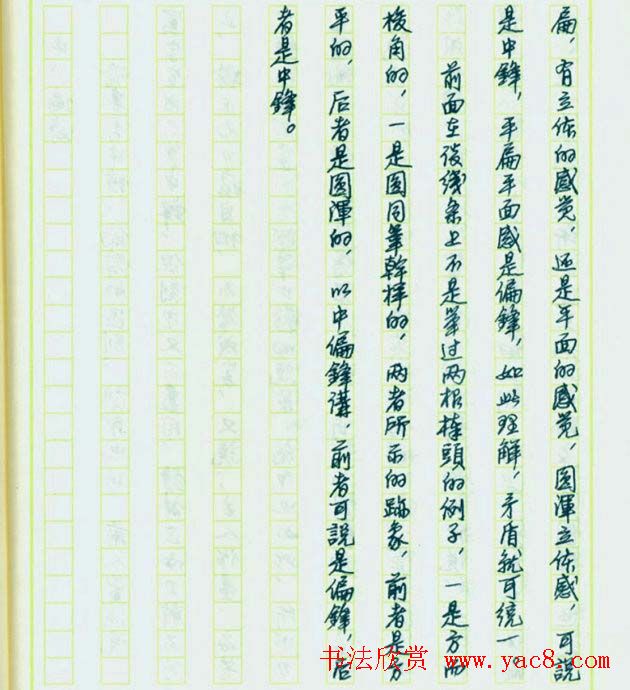 扁，有立体的感觉，还是平面的感觉，圆渾立体感，可説
是中鋒，平扁平面感是偏鋒，如此理解，矛盾就可统一
前面在谈线条上不是举过两根棒頭的例子，一是方而
梭角的，一是圆同筆幹樣的，两者所示的跡象，前者是方
平的，后者是圆渾的，以中偏鋒講，前者可説是偏鋒，后
者是中鋒。
书法欣赏 www.yac8.com